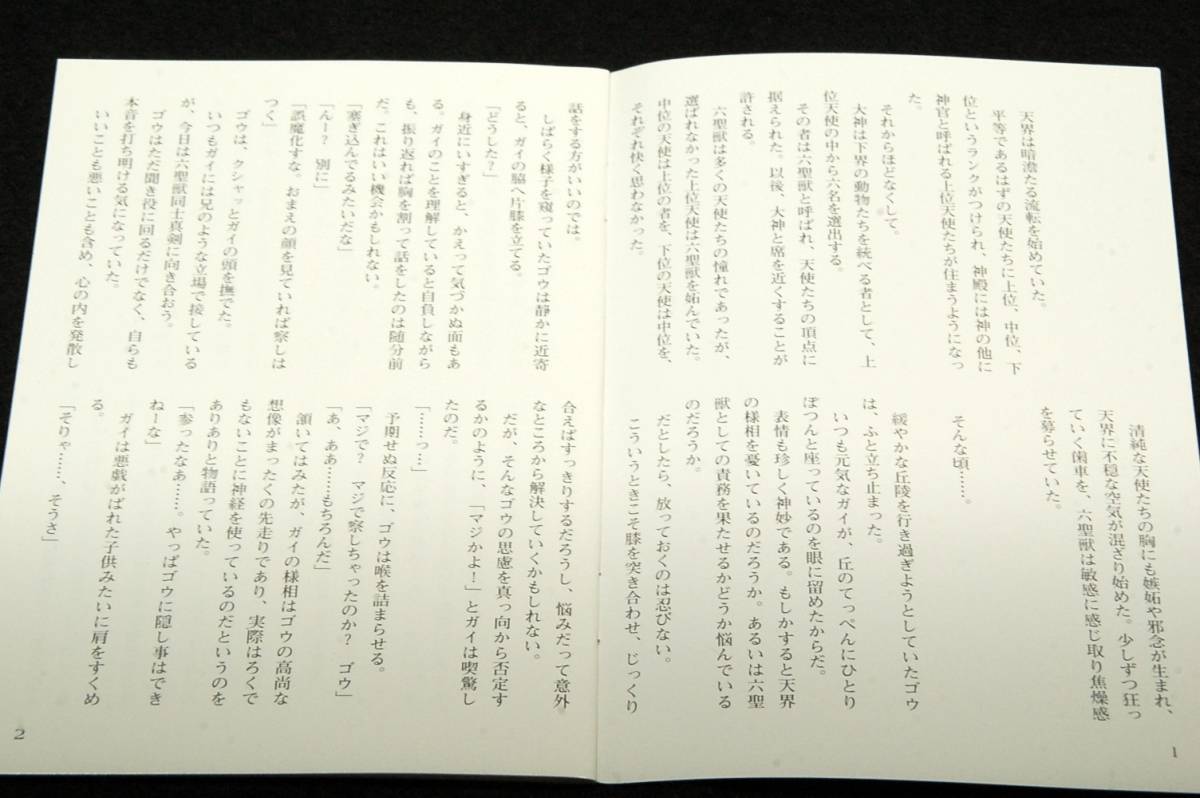 天界は暗澹たる流転を始めていた。
平等であるはずの天使たちに上位、中位、下
位というランクがつけられ、神殿には神の他に
神官と呼ばれる上位天使たちが住まうようになっ
た。
それからほどなくして。
大神は下界の動物たちを統べる者として、上
位天使の中から六名を選出する。
その者は六聖獣と呼ばれ、天使たちの頂点に
据えられた。以後、大神と席を近くすることが
許される。
六聖獣は多くの天使たちの憧れであったが、
選ばれなかった上位天使は六聖獣を妬んでいた。
中位の天使は上位の者を、下位の天使は中位を、
それぞれ快く思わなかった。
清純な天使たちの胸にも嫉妬や邪念が生まれ、
天界に不穏な空気が混ざり始めた。少しずつ狂っ
ていく歯車を、六聖獣は敏感に感じ取り焦燥感
を募らせていた。
そんな頃……。
緩やかな丘陵を行き過ぎようとしていたゴウ
は、ふと立ち止まった。
いつも元気なガイが、丘のてっぺんにひとり
ぽつんと座っているのを眼に留めたからだ。
表情も珍しく神妙である。もしかすると天界
の様相を憂いているのだろうか。あるいは六聖
獣としての責務を果たせるかどうか悩んでいる
のだろうか。
だとしたら、放っておくのは忍びない。
こういうときこそ膝を突き合わせ、じっくり
1
話をする方がいいのでは。
しばらく様子を窺っていたゴウは静かに近寄
ると、ガイの脇へ片膝を立てる。
「どうした?」
身近にいすぎると、かえって気づかぬ面もあ
る。ガイのことを理解していると自負しながら
も、振り返れば胸を割って話をしたのは随分前
だ。これはいい機会かもしれない。
「塞ぎ込んでるみたいだな」
「んー? 別に」
「誤魔化すな。おまえの顔を見ていれば察しは
つく」
ゴウは、クシャッとガイの頭を撫でた。
いつもガイには兄のような立場で接している
が、今日は六聖獣同士真剣に向き合おう。
ゴウはただ聞き役に回るだけでなく、自らも
本音を打ち明ける気になっていた。
いいことも悪いことも含め、心の内を発散し
合えばすっきりするだろうし、悩みだって意外
なところから解決していくかもしれない。
だが、そんなゴウの思慮を真っ向から否定す
るかのように、「マジかよ!」とガイは喫驚し
たのだ。
「……っ…」
予期せぬ反応に、ゴウは喉を詰まらせる。
「マジで? マジで察しちゃったのか? ゴウ」
「あ、ああ……もちろんだ」
頷いてはみたが、ガイの様相はゴウの高尚な
想像がまったくの先走りであり、実際はろくで
もないことに神経を使っているのだというのを
ありありと物語っていた。
「参ったなあ……。やっぱゴウに隠し事はでき
ねーな」
ガイは悪戯がばれた子供みたいに肩をすくめ
る。
「そりゃ……、そうさ」
2